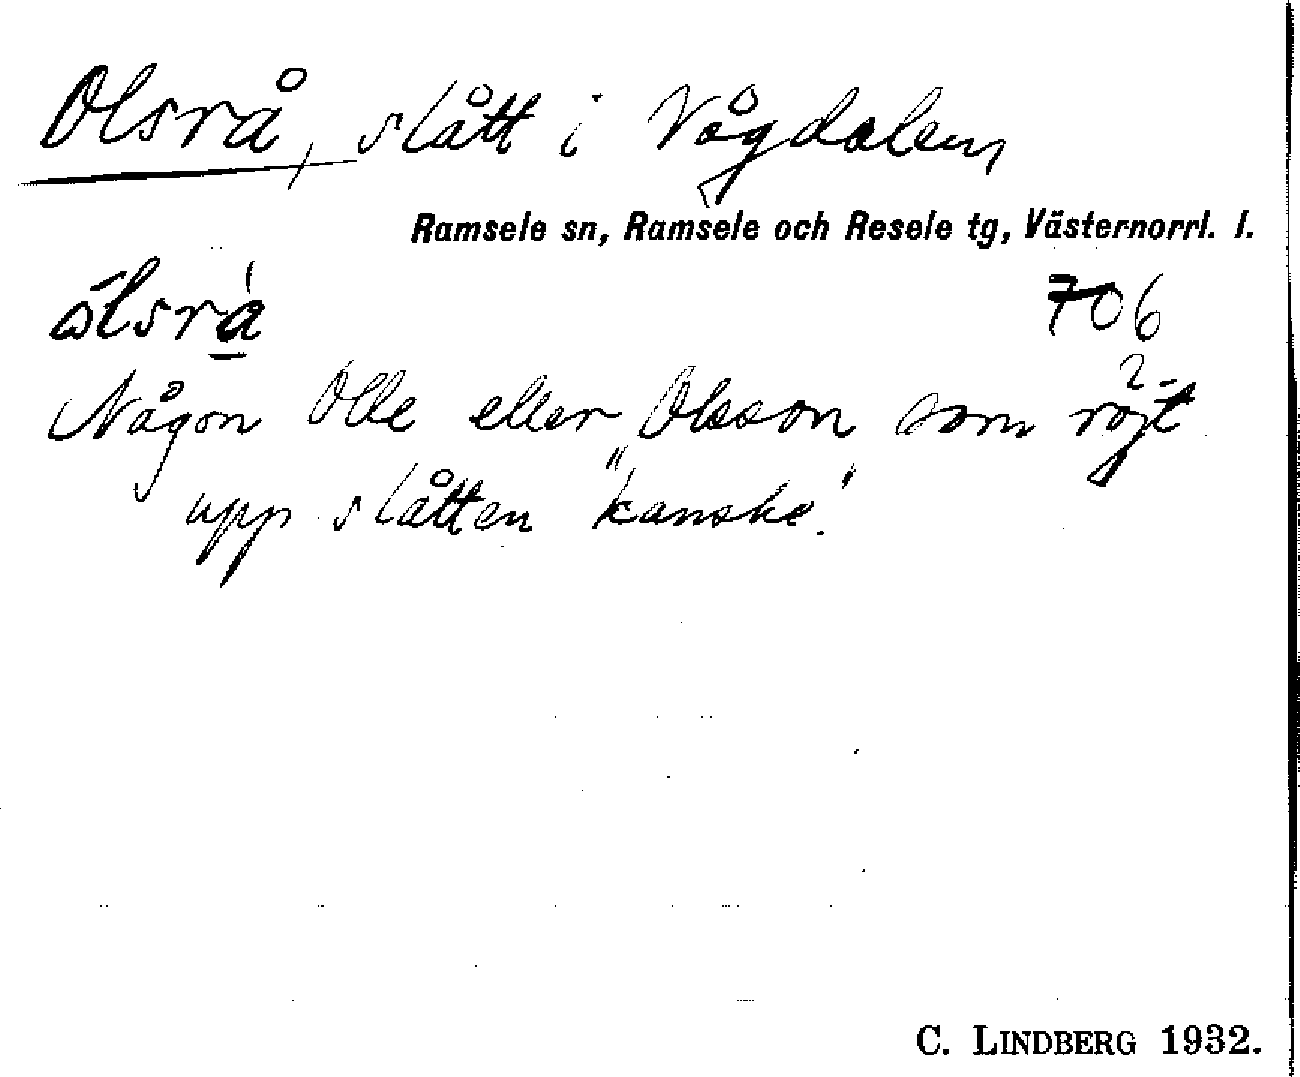 Olsrå, slått i Vågdalen,
Ramsele sn, Ramsele och Resele tg, Västernorrl. l.
706
Någon Olle eller Olsson som röjt
upp slåtten "kanske".
C. LINDBERG 1932.